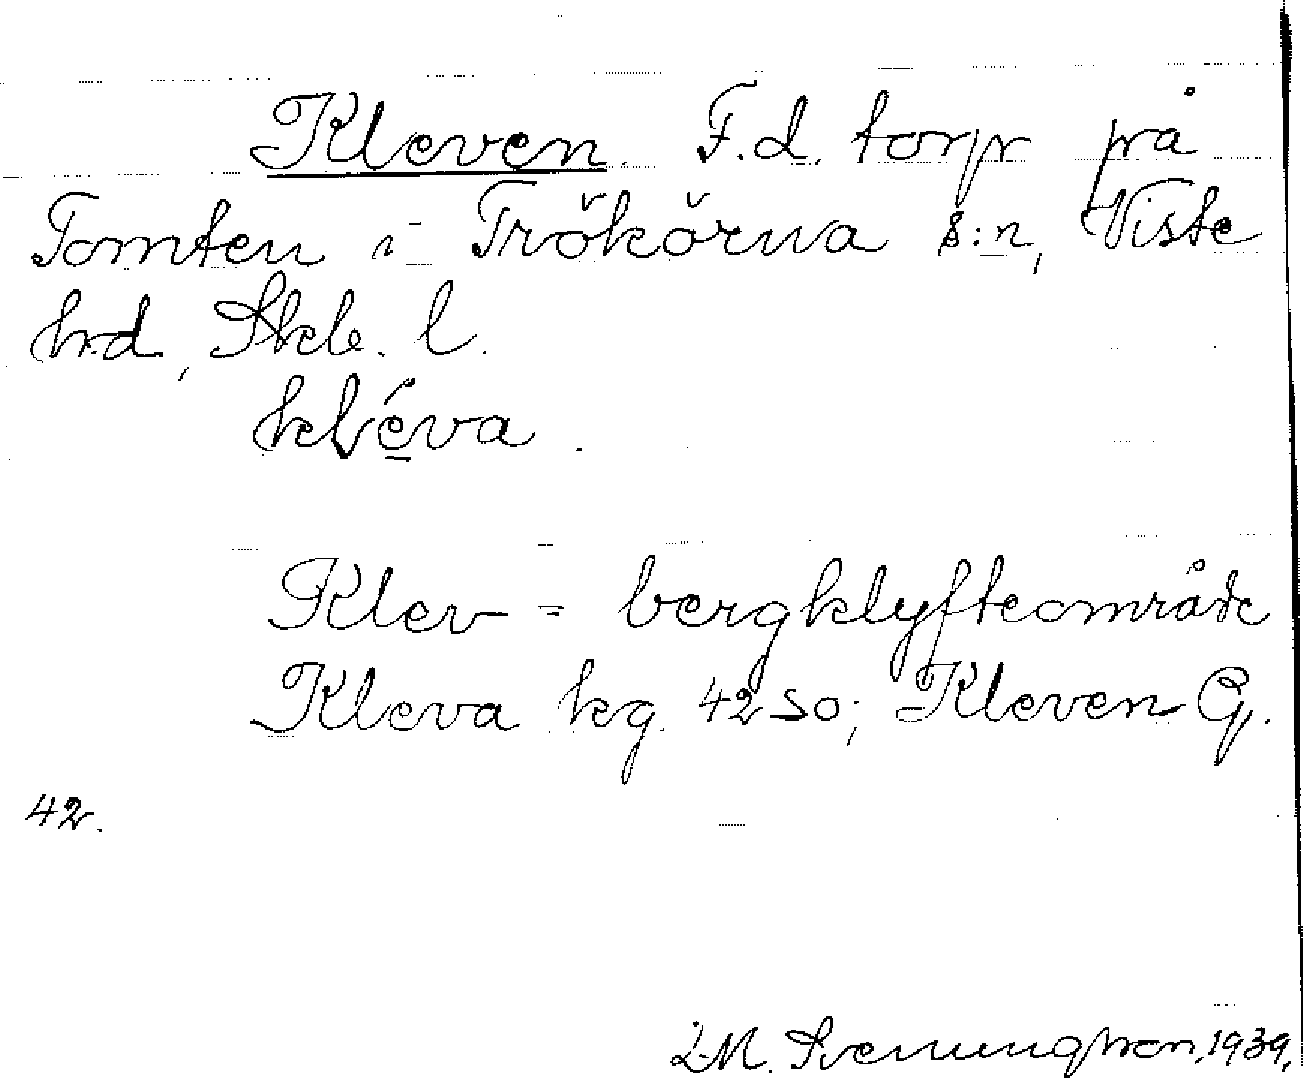 Kleven. F.d. torp på
Tomten i Trökörna s:n, Viste
hd, Skb. l.
kléva.
Klev = bergklyfteområde
Kleva kg. 42 SO; Kleven G.
42.
M. Svenungsson, 1939.